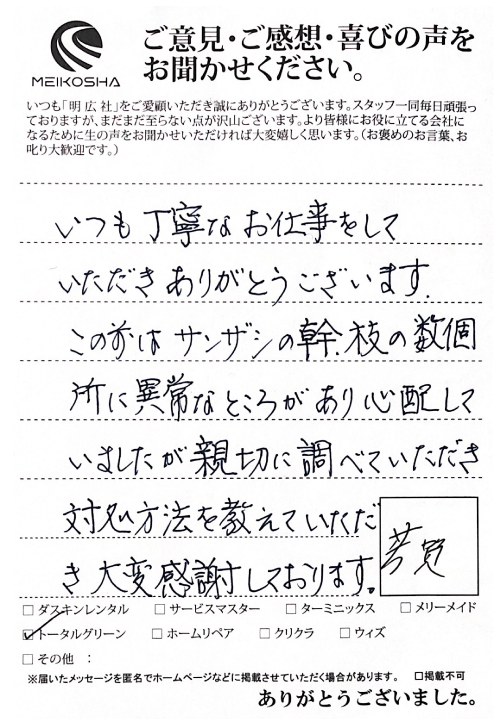 MEIKOSHA
ご意見・ご感想・喜びの声を
お聞かせください。
いつも「明広社」をご愛顧いただき誠にありがとうございます。スタッフ一同毎日頑張っ
ておりますが、まだまだ至らない点が沢山ございます。より皆様にお役に立てる会社に
なるために生の声をお聞かせいただければ大変嬉しく思います。（お褒めのお言葉、お
叱り大歓迎です。）
いつも丁寧なお仕事をして
いただきありがとうございます.
この前はサンザシの幹.枝の数個
所に異常なところがあり心配して
いましたが親切に調べていただき
対処方法を教えていただ
き大変感謝しております。
□ダスキンレンタル □サービスマスター □ターミニックス □メリーメイド
☑トータルグリーン □ホームリペア □クリクラ □ウィズ
□その他 ：
※届いたメッセージを匿名でホームページなどに掲載させていただく場合があります。 □掲載不可
ありがとうございました。